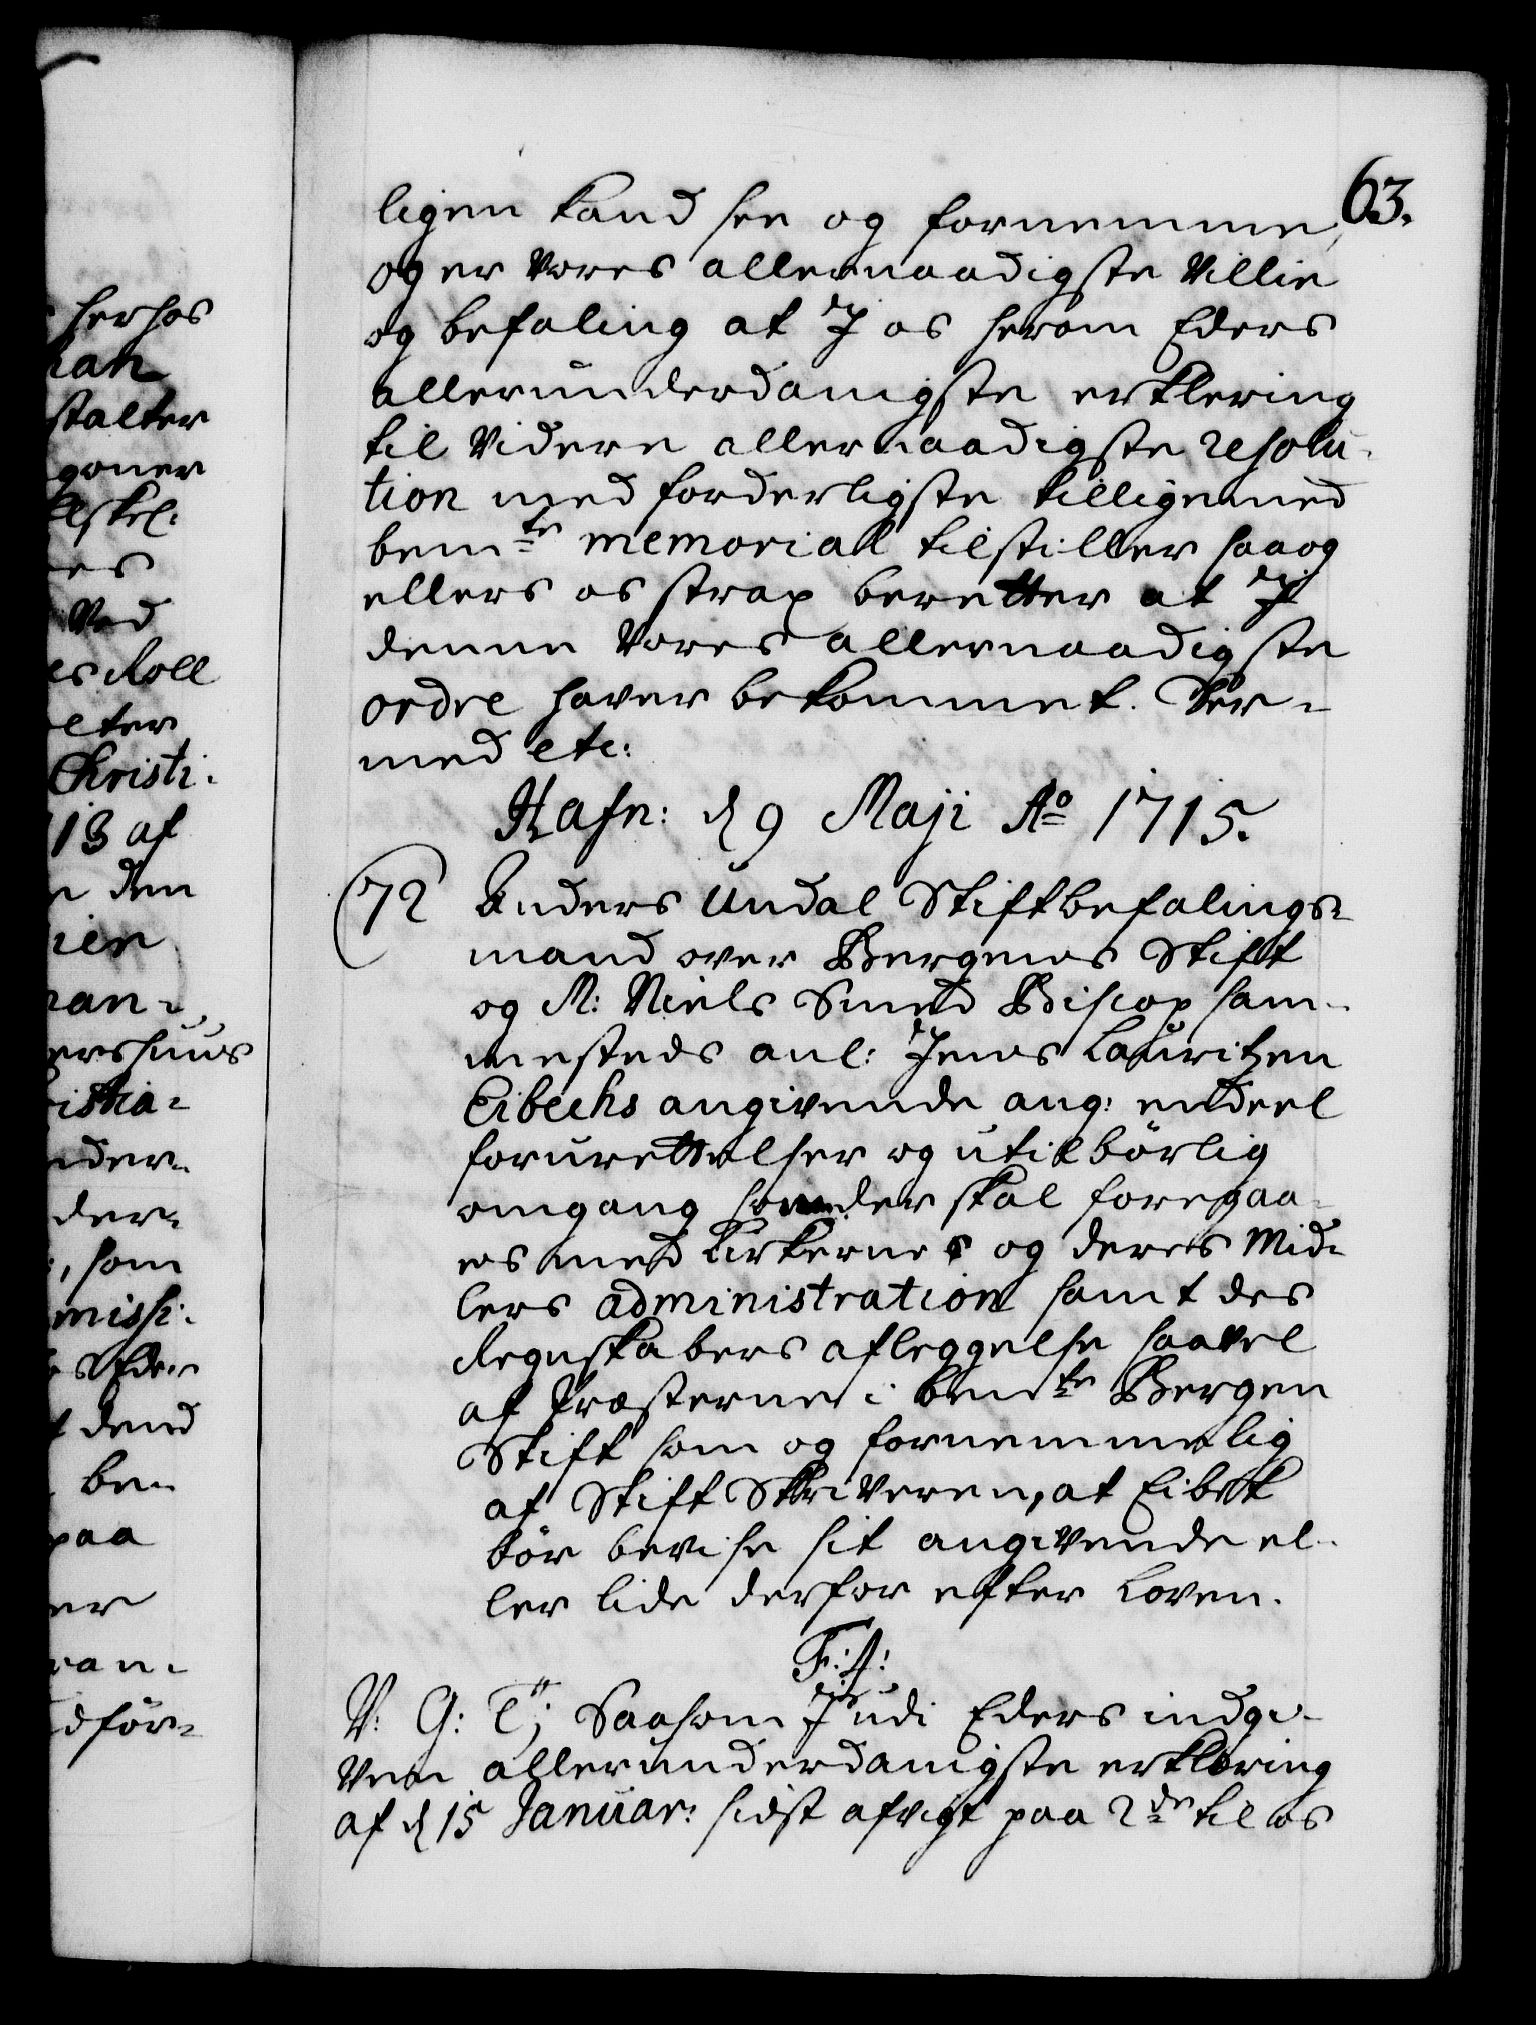 63.
ligen kand see og fornemme,
og er Vores allernaadigste Villie
og befaling at I os herom Eders
allerunderdanigste erklering
til Videre allernaadigste resolu-
tion med forderligste tilligemed
bem:te memorial tilstiller saa og
ellers os strax beretter at I
denne Vores allernaadigste
ordre haver bekommet. Der-
med etc:
Hafn: d 9 Maji Ao 1715.
72 Anders Undal Stiftbefalings-
mand over Bergens Stift
og M: Niels Smed Biscop sam-
mesteds anl: Jens Lauritzen
Eibechs angivende ang: endeel
forurettelser og utilbörlig
omgang som der skal foregaa-
es med Kirkernes og deres Mid-
lers administration samt des
Regnskabers afleggelse saavel
af Præsterne i bem:te Bergen
Stift som og fornemmelig
af Stift Skriveren, at Eibek
bör bevise sit angivende el-
ler lide derfor efter Loven.
F: 4:
V: G: T; Saasom I udi Eders indgi-
ven allerunderdanigste erklæring
af d 15 Januar: sidst afvigt paa 2de til os
herhos
han
stalter
goner
es
Ved
es Roll
elter
Christi-
13 af
n den
ien
han-
ershuus
istia-
nder-
der-
, som
missi-
t dend
be-
paa
er
ran-
dför-